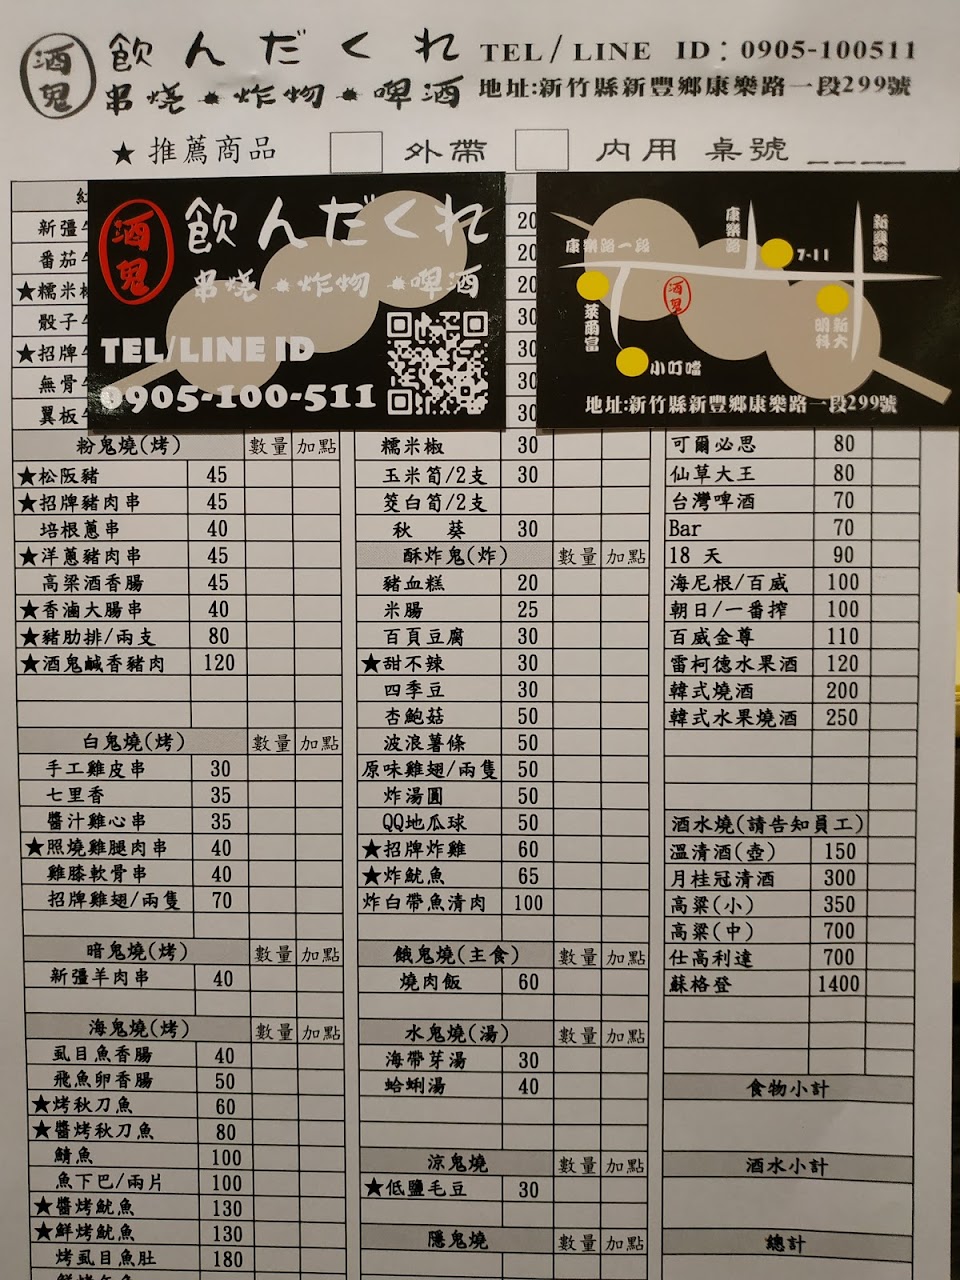 酒鬼
飲んだくれ
串燒*炸物*啤酒
TEL/LINE ID:0905-100511
地址:新竹縣新豐鄉康樂路一段299號
★推薦商品 外帶 內用 桌號 ____
酒鬼
飲んだくれ
串燒*炸物*啤酒
TEL/LINE ID
0905-100-511
康樂路一段
康樂路
新興路
7-11
酒鬼
萊爾富
小叮噹
明新科大
地址:新竹縣新豐鄉康樂路一段299號
紅
新疆
番茄
★糯米椒
骰子
★招牌
無骨
翼板
20
20
20
30
30
30
30
粉鬼燒(烤) 數量 加點
★松阪豬 45
★招牌豬肉串 45
培根蔥串 40
★洋蔥豬肉串 45
高梁酒香腸 45
★香滷大腸串 40
★豬肋排/兩支 80
★酒鬼鹹香豬肉 120
白鬼燒(烤) 數量 加點
手工雞皮串 30
七里香 35
醬汁雞心串 35
★照燒雞腿肉串 40
雞膝軟骨串 40
招牌雞翅/兩隻 70
暗鬼燒(烤) 數量 加點
新疆羊肉串 40
海鬼燒(烤) 數量 加點
虱目魚香腸 40
飛魚卵香腸 50
★烤秋刀魚 60
★醬烤秋刀魚 80
鯖魚 100
魚下巴/兩片 100
★醬烤魷魚 130
★鮮烤魷魚 130
烤虱目魚肚 180
糯米椒 30
玉米筍/2支 30
筊白筍/2支
秋葵 30
酥炸鬼(炸) 數量 加點
豬血糕 20
米腸 25
百頁豆腐 30
★甜不辣 30
四季豆 30
杏鮑菇 50
波浪薯條 50
原味雞翅/兩隻 50
炸湯圓 50
QQ地瓜球 50
★招牌炸雞 60
★炸魷魚 65
炸白帶魚清肉 100
餓鬼燒(主食) 數量 加點
燒肉飯 60
水鬼燒(湯) 數量 加點
海帶芽湯 30
蛤蜊湯 40
涼鬼燒 數量 加點
★低鹽毛豆 30
隱鬼燒 數量 加點
可爾必思 80
仙草大王 80
台灣啤酒 70
Bar 70
18 天 90
海尼根/百威 100
朝日/一番搾 100
百威金尊 110
雷柯德水果酒 120
韓式燒酒 200
韓式水果燒酒 250
酒水燒(請告知員工)
溫清酒(壺) 150
月桂冠清酒 300
高粱(小) 350
高粱(中) 700
仕高利達 700
蘇格登 1400
食物小計
酒水小計
總計